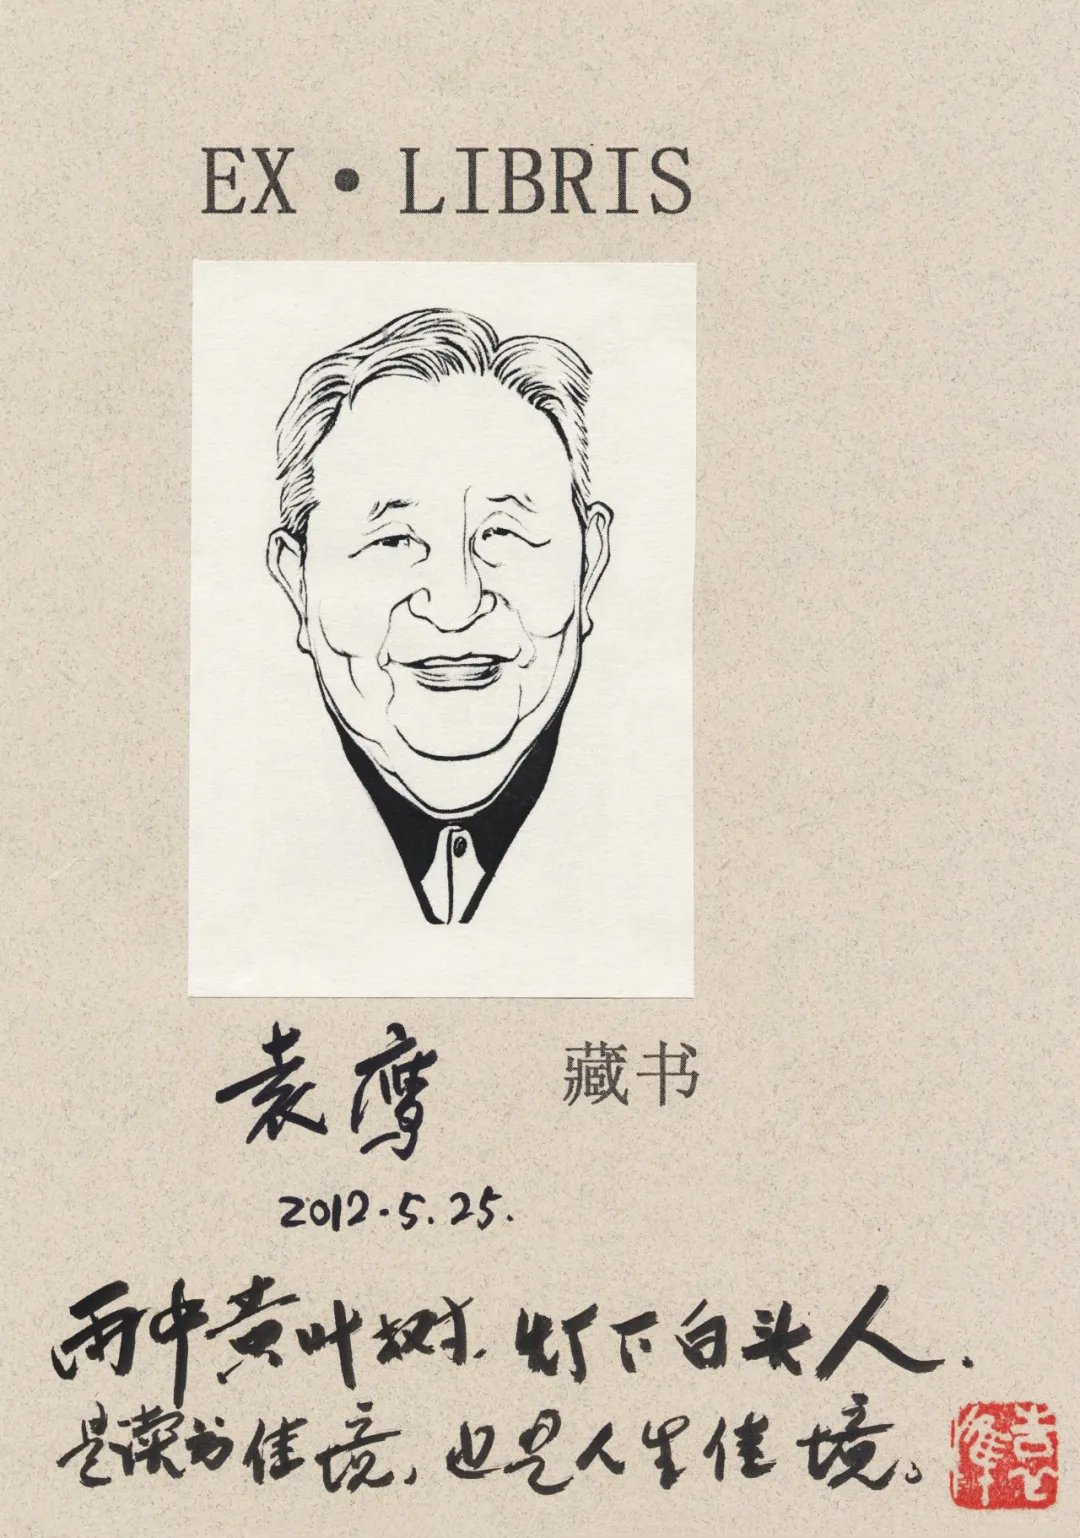 EX·LIBRIS
袁鹰 藏书
2012.5.25.
雨中黄叶树，灯下白头人。
是读书佳境，也是人生佳境。